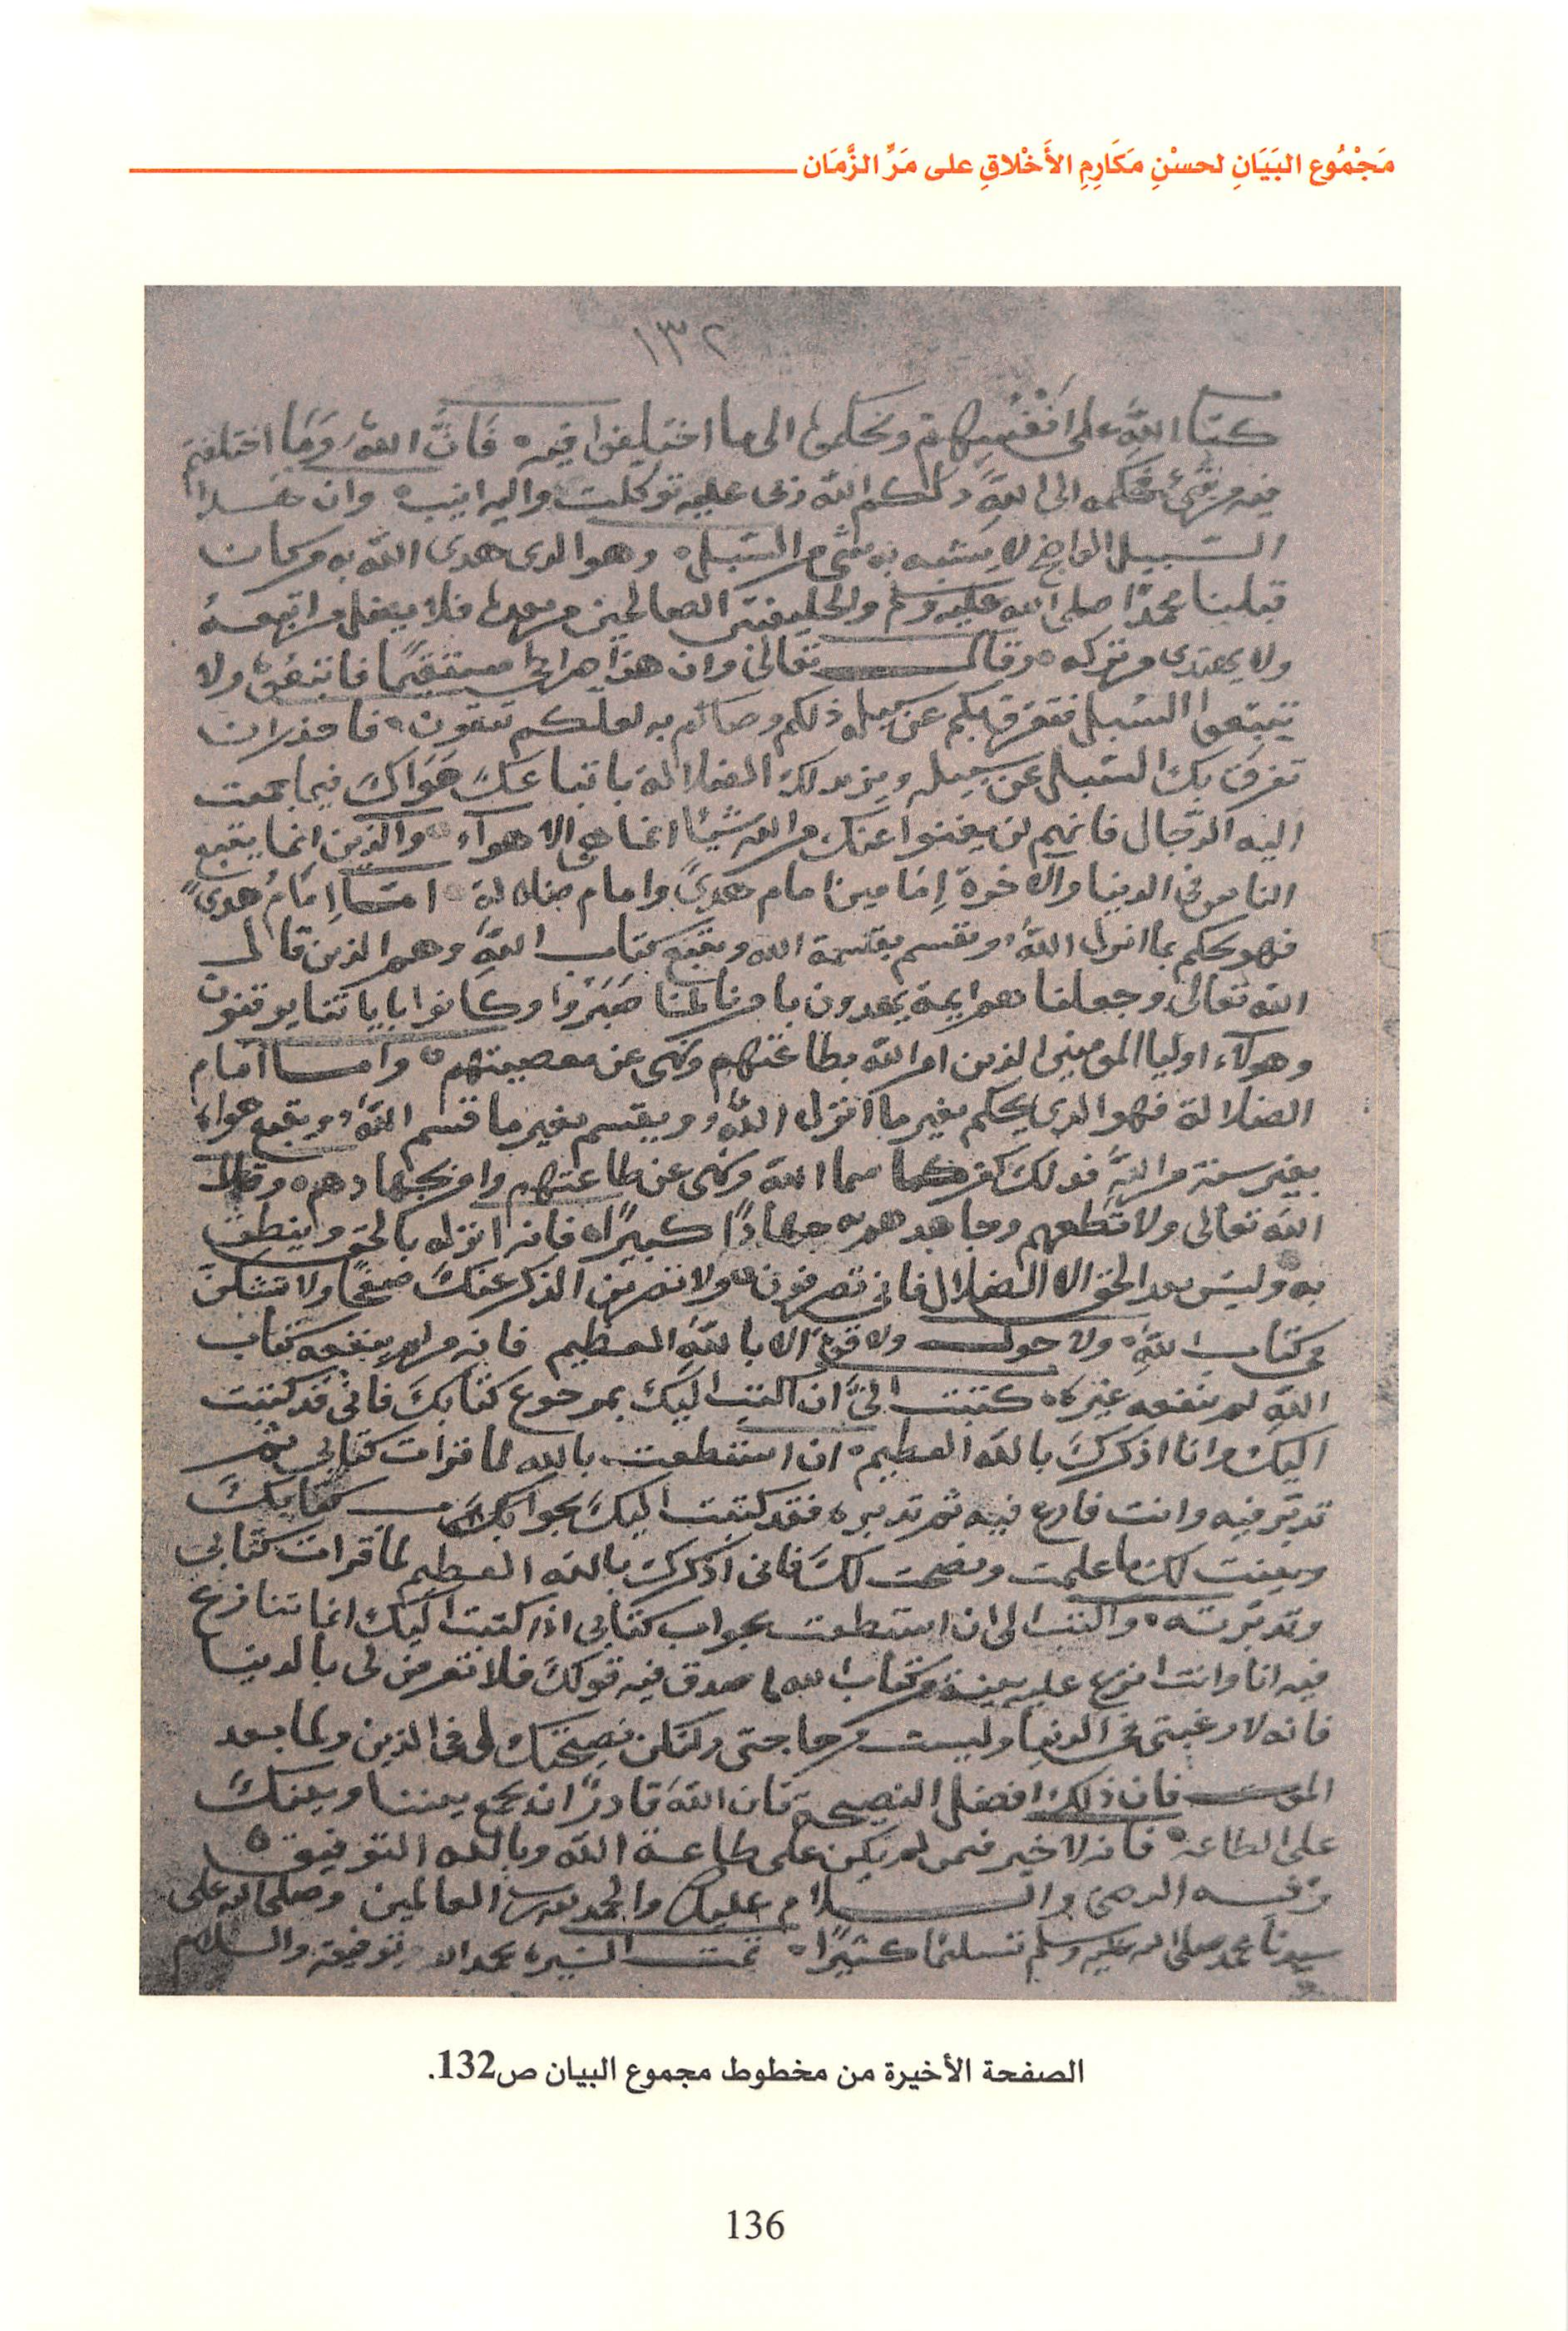 مَجْمُوع البَيَانِ لحسْنِ مَكَارِمِ الأَخْلاقِ على مَرِّ الزَّمَان
١٣٢
كتاب اللهِ على انفسهم وحكموا الى ما اختلفوا فيه فَانَّ اللهَ وَمَا اختلفتم
فيه من شيء فحكمه الى اللهِ ذلكم الله ربى عليه توكلت واليه انيب وان هدا
السبيل الواضح لا يشبه به شى من السبل وهو الدى هدى الله به من كان
قبلنا محمدًا صلى الله عليه وسلم والخليفتين الصالحين من بعده فلا يضل من اتبعه
ولا يهتدى من تركه وقال تعالى وان هذا صراطى مستقيمًا فاتبعوه ولا
تتبعوا السبل فتفرق بكم عن سبيله ذلكم وصاكم به لعلكم تتقون فاحذر ان
تفرق بك السبل عن سبيله ويزيد لك الضلالة باتباعكَ هَوَاكَ فيما جمعت
اليه الرجال فانهم لن يغنوا عنك من الله شيئا انما هى الاهواء والذين انما يتبع
الناس فى الدينا والاخرة إمامين امام هدىً وامام ضلالة امّا إمَامُ هدىً
فهو يحكم بما انزل اللهُ ويقسم بقسمة الله ويتبع كتاب اللهِ وهم الذين قال
الله تعالى وجعلنا هم ايمة يهدون بامرنا لمّا صَبَرُوا وكانوا باياتنا يوقنون
وهولاء اوليا المومنين الذين امر الله بطاعتهم ونهى عن معصيتهم وامّا امام
الضلالة فهو الدى يحكم بغير ما انزل اللهُ ويقسم بغير ما قسم اللهُ ويتبع هواه
بغير سنة من اللهِ فدلك كفر كما سما الله ونهى عن طاعتهم وامر بجهادهم وقال
الله تعالى ولا تطعهم وجاهدهم به جهادًا كبيرًا فانه انزله بالحق وينطق
به وليس بعد الحق الا الضلال فانى تصرفون ولا تضربن الذكر عنك صفحًا ولا تشكن
فى كتاب اللهِ ولا حول ولا قوة الا باللهِ العظيم فانه من لم ينفعه كتاب
اللهِ لم ينفعه غيره كتبت الىَّ ان اكتب اليك بمرجوع كتابكَ فانى قد كتبت
اليك وانا اذكركَ بالله العظيم ان استطعت بالله لما قرات كتابي ثم
تدبر فيه وانت فارغ فيه ثم تدبره فقد كتبت اليكَ بجواب كتابكَ
وبينت لك ما علمت ونصحت لكَ فانى اذكرك بالله العظيم لما قرات كتابي
وتدبرته واكتب الى ان استطعت بجواب كتابى اذا كتبت اليك انما تنازع
فيه انا وانت انزع عليه بينة من كتاب الله صدق فيه قولكَ فلا تعرض لى بالدينا
فانه لا رغبتى فى الدنيا وليست من حاجتى ولتكن نصيحتك لى فى الدين ولما بعد
الموت فان ذلك افضل النصيحة فان اللهَ قادرًا ان يجمع بيننا وبينكَ
على الطاعة فانه لا خير فمن لم يكن على طاعة الله وبالله التوفيق
وفيه الرضى والسلام عليك والحمد لله رب العالمين وصلى الله على
سيدنا محمد صلى الله عليه وسلم تسليمًا كثيرًا تمت السيره بحمد الله وتوفيقه والسلام
الصفحة الأخيرة من مخطوط مجموع البيان ص132.
136